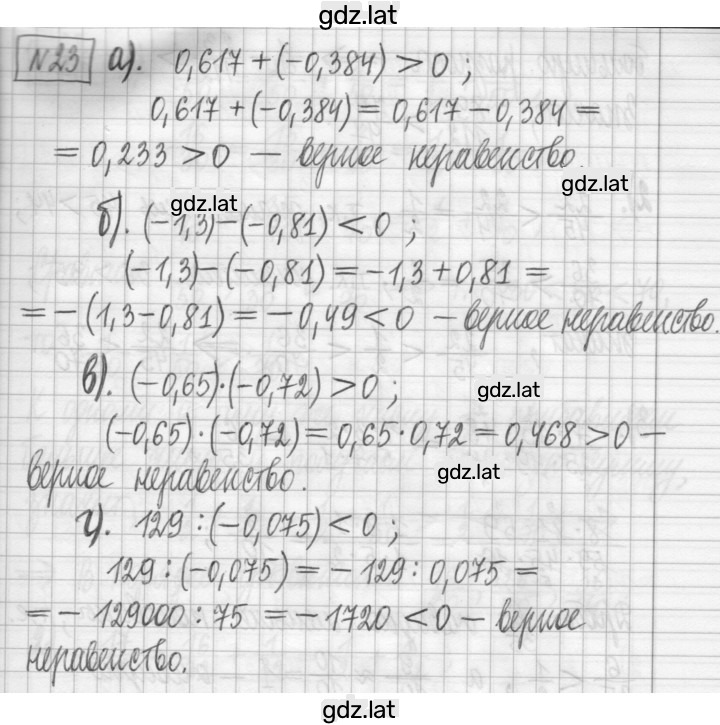 gdz.lat
№23 а). 0,617 + (-0,384) > 0 ;
0,617 + (-0,384) = 0,617 - 0,384 =
= 0,233 > 0 — верное неравенство.
gdz.latgdz.lat
б). (-1,3) - (-0,81) < 0 ;
(-1,3) - (-0,81) = -1,3 + 0,81 =
= - (1,3 - 0,81) = - 0,49 < 0 - верное неравенство.
в). (-0,65)·(-0,72) > 0 ;
gdz.lat
(-0,65)·(-0,72) = 0,65·0,72 = 0,468 > 0 —
верное неравенство.
gdz.lat
г). 129 : (-0,075) < 0 ;
129 : (-0,075) = - 129 : 0,075 =
= - 129000 : 75 = - 1720 < 0 — верное
неравенство.
gdz.lat